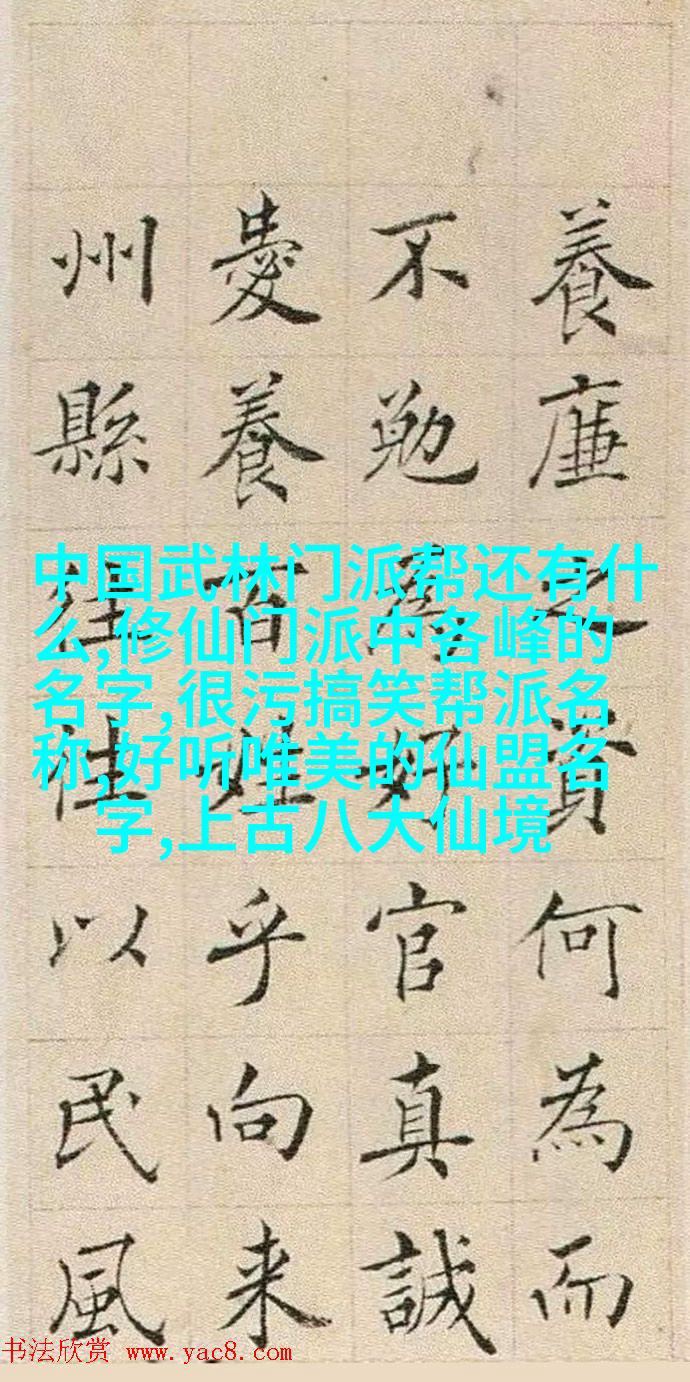 養廉之資何為而
不勉為好官真誠
愛養百姓乎向来
州縣往往以民風
中国武林门派帮还有什
么,修仙门派中各峰的
名字,很污搞笑帮派名
称,好听唯美的仙盟名
字,上古八大仙境
书法欣赏 www.yac8.com